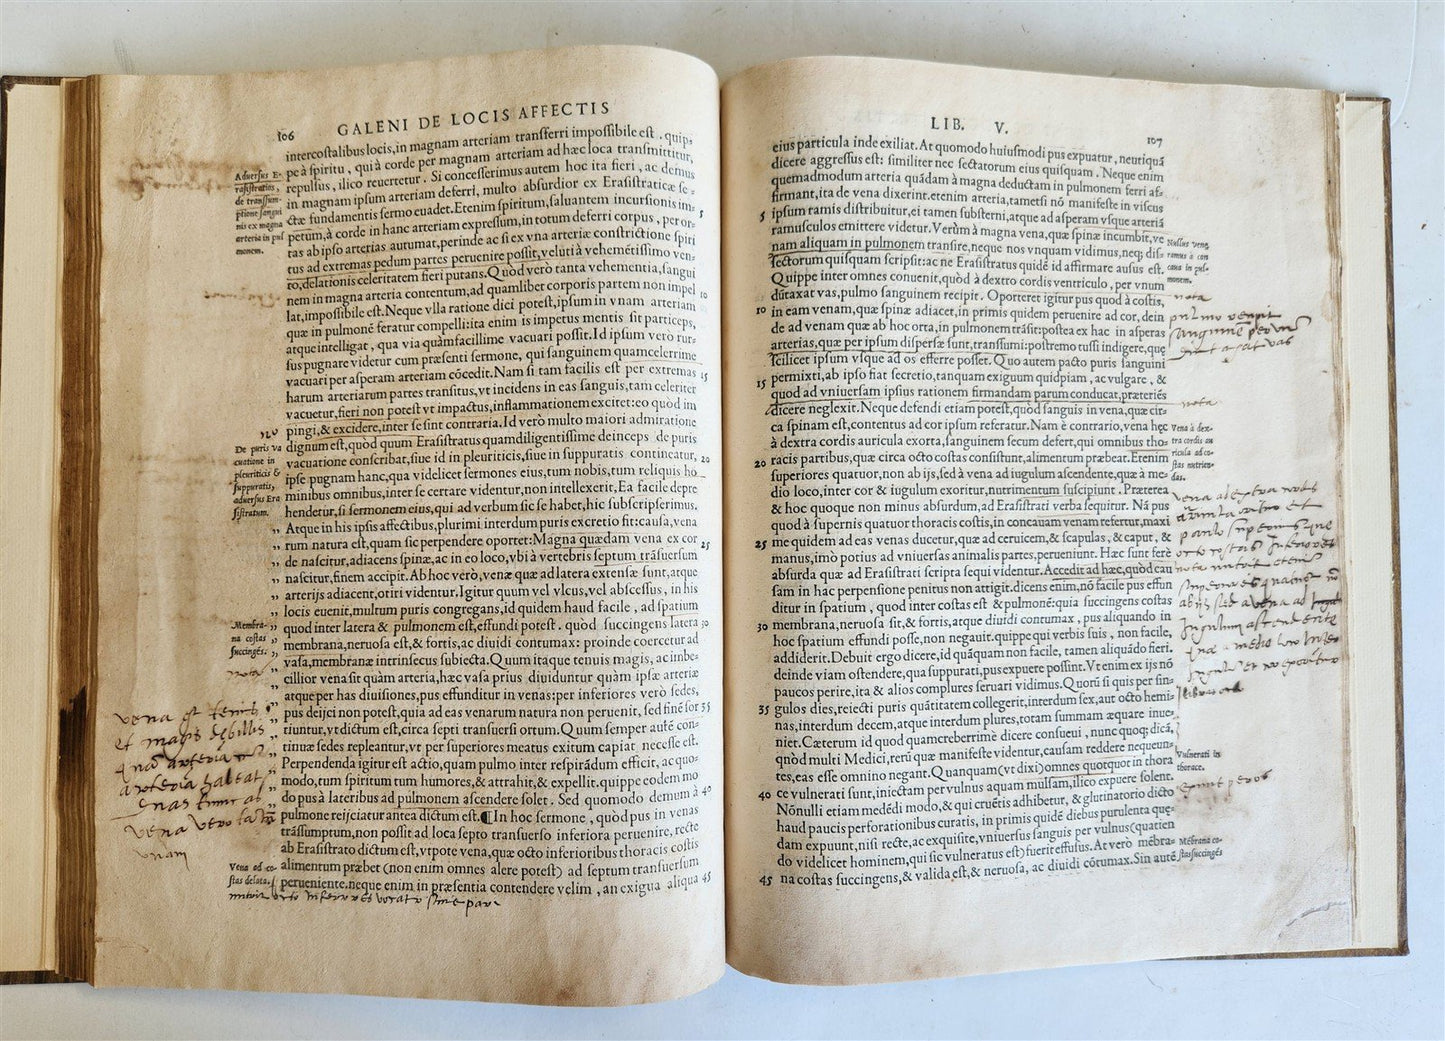 106
GALENI DE LOCIS AFFECTIS
intercostalibus locis, in magnam arteriam transferri impossibile est . quip-
pe à spiritu , qui à corde per magnam arteriam ad hæc loca transmittitur,
repulsus, ilico reuertetur. Si concesserimus autem hoc ita fieri , ac demus
in magnam ipsum arteriam deferri, multo absurdior ex Erasistraticæ se-
ctæ fundamentis sermo euadet. Etenim spiritum, saluantem incursionis im-
petum, à corde in hanc arteriam expressum, in totum deferri corpus , per or-
tas ab ipso arterias autumat, perinde ac si ex vna arteriæ constrictione spiri
tus ad extremas pedum partes peruenire possit, veluti à vehemẽtissimo ven-
to, delationis celeritatem fieri putans. Quòd verò tanta vehementia, sangui
nem in magna arteria contentum, ad quamlibet corporis partem non impel
lat, impossibile est. Neque vlla ratione dici potest, ipsum in vnam arteriam
quæ in pulmonẽ feratur compelli: ita enim is impetus mentis sit particeps,
atque intelligat , qua via quàmfacillime vacuari possit. Id ipsum verò rur-
sus pugnare videtur cum præsenti sermone, qui sanguinem quamcelerrime
vacuari per asperam arteriam cõcedit. Nam si tam facilis est per extremas
harum arteriarum partes transitus, vt incidens in eas sanguis, tam celeriter
vacuetur, fieri non potest vt impactus, inflammationem excitet: eo quòd im
pingi, & excidere, inter se sint contraria. Id verò multo maiori admiratione
dignum est, quòd quum Erasistratus quamdiligentissime deinceps de puris
vacuatione conscribat, siue id in pleuriticis, siue in suppuratis contineatur,
ipse pugnam hanc, qua videlicet sermones eius, tum nobis, tum reliquis ho
minibus omnibus, inter se certare videntur, non intellexerit. Ea facile depre
hendetur, si sermonem eius, qui ad verbum sic se habet, hic subscripserimus.
Atque in his ipsis affectibus, plurimi interdum puris excretio fit: causa, vena
rum natura est, quam sic perpendere oportet: Magna quædam vena ex cor
de nascitur, adiacens spinæ, ac in eo loco, vbi à vertebris septum trãsuersum
nascitur, finem accipit. Ab hoc verò, venæ quæ ad latera extensæ sunt, atque
arterijs adiacent, otiri videntur. Igitur quum vel vlcus, vel abscessus , in his
locis euenit, multum puris congregans, id quidem haud facile , ad spatium
quod inter latera & pulmonem est, effundi potest . quòd succingens latera
membrana, neruosa est, & fortis, ac diuidi contumax: proinde coercetur ad
vasa, membranæ intrinsecus subiecta. Quum itaque tenuis magis, ac imbe-
cillior vena sit quàm arteria, hæc vasa prius diuiduntur quàm ipsæ arteriæ
atque per has diuisiones, pus effunditur in venas: per inferiores verò sedes,
pus deijci non potest, quia ad eas venarum natura non peruenit, sed finẽ sor
tiuntur, vt dictum est, circa septi transuersi ortum. Quum semper autẽ con-
tinuæ sedes repleantur, vt per superiores meatus exitum capiat necesse est.
Perpendenda igitur est actio, quam pulmo inter respirãdum efficit, ac quo-
modo, tum spiritum tum humores, & attrahit, & expellit. quippe eodem mo
do pus à lateribus ad pulmonem ascendere solet . Sed quomodo demum à
pulmone reijciatur antea dictum est. ¶In hoc sermone , quòd pus in venas
trãssumptum, non possit ad loca septo transuerso inferiora peruenire, recte
ab Erasistrato dictum est, vtpote vena, quæ octo inferioribus thoracis costis
alimentum præbet (non enim omnes alere potest) ad septum transuersum
perueniente. neque enim in præsentia contendere velim , an exigua aliqua
5
10
15
20
25
30
35
40
45
Aduersus E-
rasistratios,
de transsum-
ptione sangui
nis ex magna
arteria in pul
monem.
De puris va
cuatione in
pleuriticis &
suppuratis,
aduersus Era
sistratum.
Membra-
na costas
succingẽs.
nota
vena est tenuis
et magis debillis
arteria
vena vero
vnam
Vena ad co-
stas delata.
LIB. V.
107
eius particula inde exiliat. At quomodo huiusmodi pus expuatur, neutiquã
dicere aggressus est: similiter nec sectatorum eius quisquam . Neque enim
quemadmodum arteria quãdam à magna deductam in pulmonem ferri af-
firmant, ita de vena dixerint. etenim arteria, tametsi nõ manifeste in viscus
ipsum ramis distribuitur, ei tamen substerni, atque ad asperam vsque arteriã
ramusculos emittere videtur. Verùm à magna vena, quæ spinæ incumbit, ve
nam aliquam in pulmonem transire, neque nos vnquam vidimus, neq; dis-
sectorum quisquam scripsit: ac ne Erasistratus quidẽ id affirmare ausus est.
Quippe inter omnes conuenit, quòd à dextro cordis ventriculo , per vnum
dũtaxat vas, pulmo sanguinem recipit . Oporteret igitur pus quod à costis,
in eam venam, quæ spinæ adiacet, in primis quidem peruenire ad cor, dein
de ad venam quæ ab hoc orta, in pulmonem trãsit: postea ex hac in asperas
arterias, quæ per ipsum dispersæ sunt, transsumi: postremo tussi indigere, quę
scilicet ipsum vsque ad os efferre posset. Quo autem pacto puris sanguini
permixti, ab ipso fiat secretio, tanquam exiguum quidpiam , ac vulgare , &
quod ad vniuersam ipsius rationem firmandam parum conducat, præteriẽs
dicere neglexit. Neque defendi etiam potest, quòd sanguis in vena, quæ cir-
ca spinam est, contentus ad cor ipsum referatur. Nam è contrario, vena hęc
à dextra cordis auricula exorta, sanguinem secum defert, qui omnibus tho-
racis partibus, quæ circa octo costas consistunt, alimentum præbeat. Etenim
superiores quatuor, non ab ijs, sed à vena ad iugulum ascendente, quæ à me-
dio loco, inter cor & iugulum exoritur, nutrimentum suscipiunt . Præterea
& hoc quoque non minus absurdum, ad Erasistrati verba sequitur. Nã pus
quod à supernis quatuor thoracis costis, in concauam venam refertur, maxi
me quidem ad eas venas ducetur, quæ ad ceruicem, & scapulas , & caput , &
manus, imò potius ad vniuersas animalis partes, perueniunt. Hæc sunt ferè
absurda quæ ad Erasistrati scripta sequi videntur. Accedit ad hæc, quòd cau
sam in hac perpensione penitus non attigit. dicens enim, nõ facile pus effun
ditur in spatium , quod inter costas est & pulmonẽ: quia succingens costas
membrana, neruosa sit, & fortis, atque diuidi contumax , pus aliquando in
hoc spatium effundi posse, non negauit. quippe qui verbis suis , non facile,
addiderit. Debuit ergo dicere, id quãquam non facile, tamen aliquãdo fieri.
deinde viam ostendere, qua suppurati, pus expuere possint. Vt enim ex ijs nõ
paucos perire, ita & alios complures seruari vidimus. Quorũ si quis per sin-
gulos dies, reiecti puris quãtitatem collegerit, interdum sex, aut octo hemi-
nas, interdum decem, atque interdum plures, totam summam æquare inue-
niet. Cæterum id quod quamcreberrimè dicere consueui , nunc quoq; dicã,
quòd multi Medici, rerũ quæ manifeste videntur, causam reddere nequeun-
tes, eas esse omnino negant. Quanquam (vt dixi) omnes quotquot in thora
ce vulnerati sunt, iniectam per vulnus aquam mulsam, ilico expuere solent.
Nõnulli etiam medẽdi modo, & qui cruẽtis adhibetur, & glutinatorio dicto
haud paucis perforationibus curatis, in primis quidẽ diebus purulenta quę-
dam expuunt, nisi recte, ac exquisite, vniuersus sanguis per vulnus (quatien
do videlicet hominem, qui sic vulneratus est) fuerit effusus. At verò mẽbra-
na costas succingens, & valida est, & neruosa, ac diuidi cõtumax. Sin autẽ
5
10
15
20
25
30
35
40
45
Nullus vena
ramus à con
caua in pul-
monem.
nota
pulmo recipit
sanguine per vnũ
vas
nota
Vena à dex-
tra cordis au
ricula ad co-
stas nutrien-
das.
Vulnerati in
thorace.
Mẽbrana co-
stas succingẽs